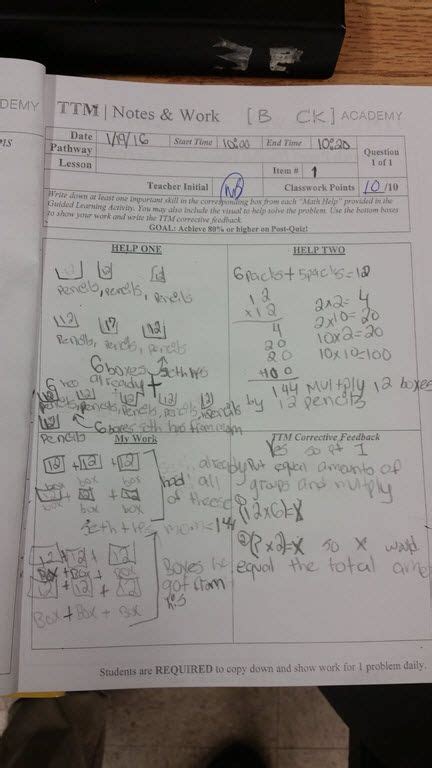 DEMY
TTM | Notes & Work [B CK] ACADEMY
Date 1/19/16 Start Time 10:00 End Time 10:20
Pathway
Question
1 of 1
Lesson
Item # 1
Teacher Initial Classwork Points 10 /10
Write down at least one important skill in the corresponding box from each "Math Help" provided in the
Guided Learning Activity. You may also include the visual to help solve the problem. Use the bottom boxes
to show your work and write the TTM corrective feedback.
GOAL: Achieve 80% or higher on Post-Quiz!
HELP ONE
pencils, pencils, pencils
12 12 12
pencils, pencils, pencils
6 boxes seth has
already +
12 12 12 12 12
pencils, pencils, pencils, pencils, pencils
12 6 boxes seth has from mom
pencils
HELP TWO
6 packs + 5 packs = 12
12
x 12
4
20
20
+100
144
2x2= 4
2x10= 20
10x2=20
10x10=100
Multply 12 boxes
by 12 pencils
My Work
12 + 12 + 12
box box box
box box box
already
had all
of these
seth + his mom = 144
12 + 12 + 12
Box + Box + Box
12 + 12 + 12
Box + Box + Box
Boxes he
got from
his
TTM Corrective Feedback
Yes so at 1
Put equal amounts of
groups and multply
(12x6)=X
so X would
equal the total
Students are REQUIRED to copy down and show work for 1 problem daily.